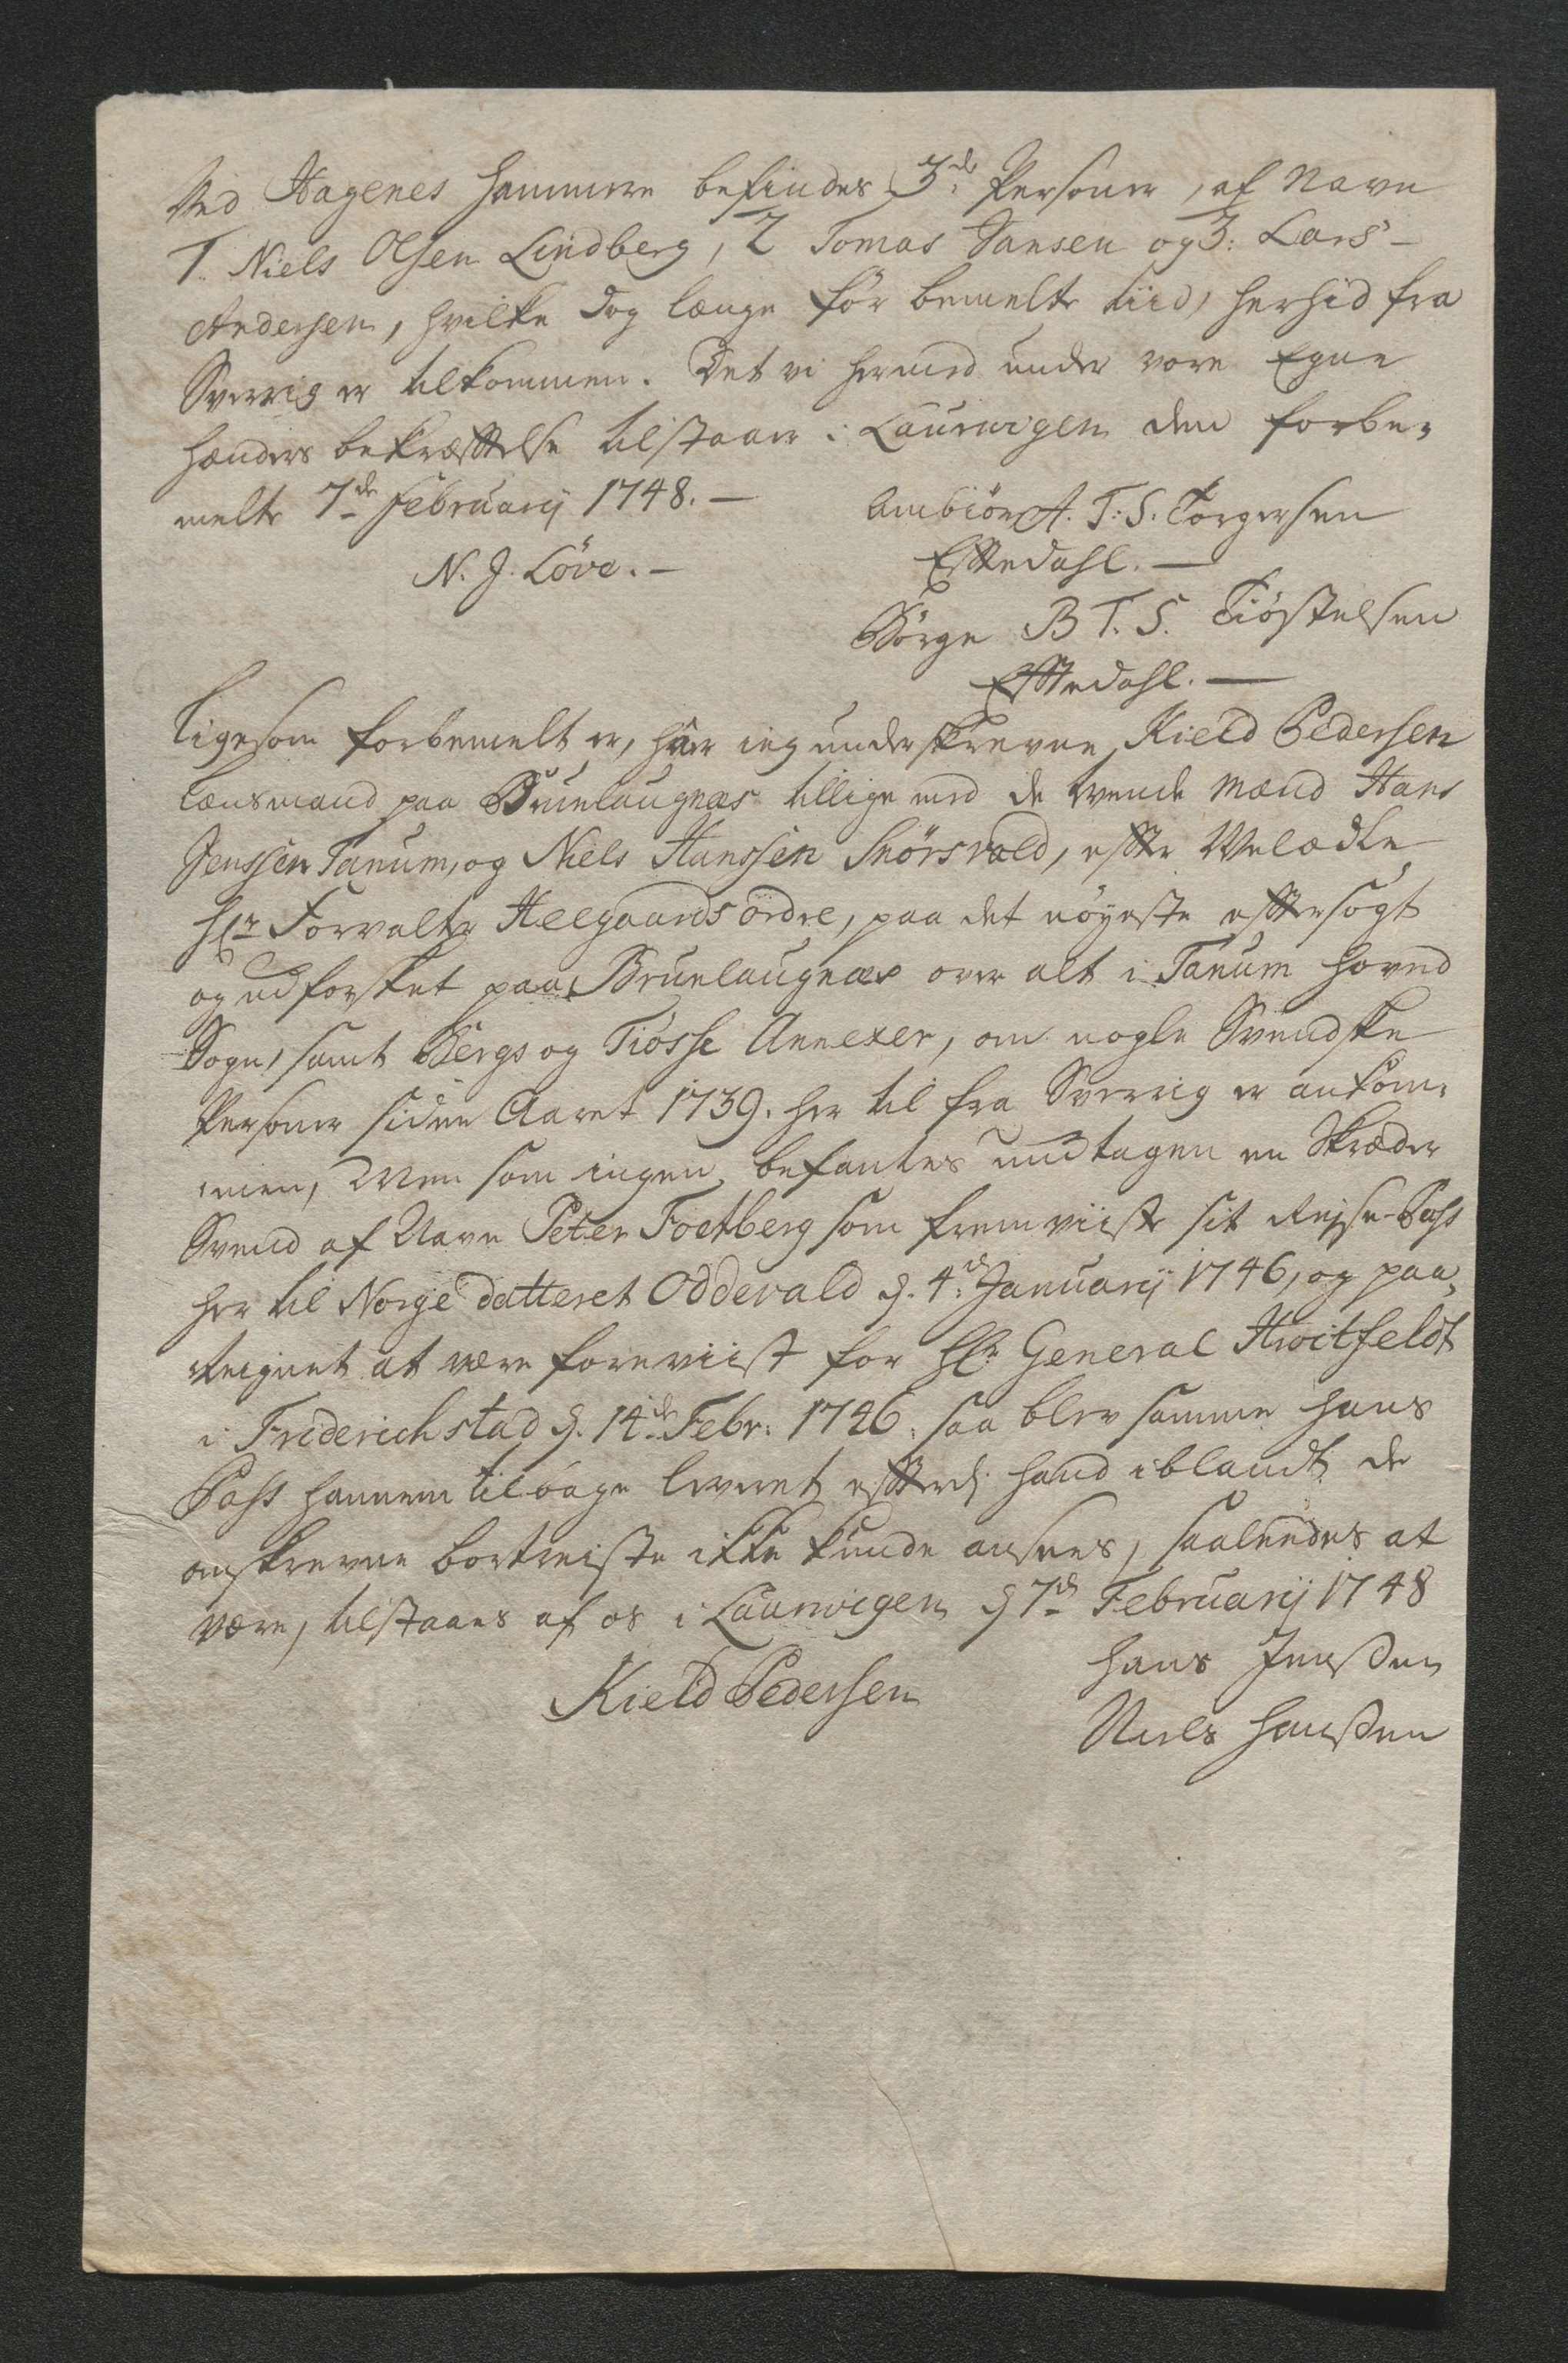 Ved Hagenes Hammere befindes 3de Personer, af Navn
1. Niels Olsen Lindberg, 2 Tomas Jansen og 3: Lars
Andersen, hvilke dog længe før bemelte tiid, herhid fra
Sverrig er tilkommen. Det vi hermed under vore Egne
hænders bekræfftelse tilstaar i Laurwigen den forbe-
melte 7de Februarij 1748. —
Ambiörn A. T. S. Torgersen
N. J. Löve. —
Efftedahl. —
Börge B T. S. Tiöstelsen
Efftedahl. —
Ligesom forbemelt er, har ieg underskrevne Kield Pedersen
Lænsmand paa Brunlaugnæs tillige med de tvende Mænd Hans
Jenssen Tanum, og Niels Hanssen Snörsvald, effter Velædle
Hr Forvalter Heegaards ordre, paa det nöyeste efftersögt
og udforsket paa Brunlaugnæs over alt i Tanum hoved
Sogn, samt Bergs og Tiösse Annexer, om nogle Svendske
Personer siden Aaret 1739. her til fra Sverrig er ankom-
men, Men som ingen befantes undtagen en Skræder
Svend af Navn Peter Foetberg som fremviiste sit Reise-Pass
her til Norge datteret Oddevald d. 4de Januarij 1746, og paa-
teignet at være foreviist for Hr General Hwitfeldt
i Friderichstad d. 14de Febr: 1746. saa blev samme hans
Pass hannem tilbage leveret, effterdj hand iblandt de
anskrevne bortreiste ikke kunde ansees, saaleedes at
være, tilstaaes af os i Laurwigen d 7de Februarij 1748
Kield Pedersen
Hans Jenssen
Niels Hanssen